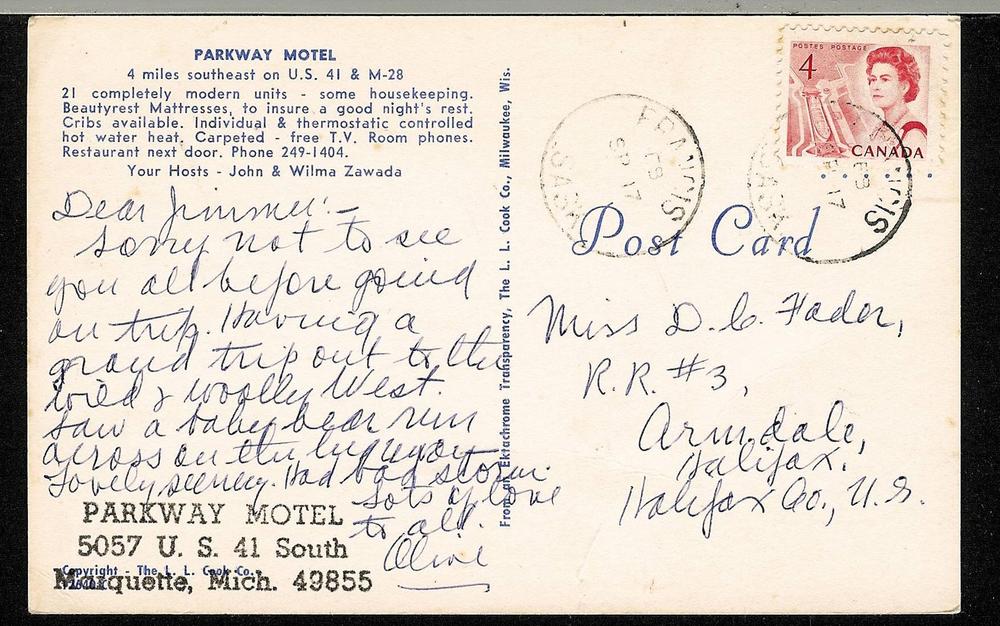 PARKWAY MOTEL
4 miles southeast on U.S. 41 & M-28
21 completely modern units - some housekeeping.
Beautyrest Mattresses, to insure a good night's rest.
Cribs available. Individual & thermostatic controlled
hot water heat. Carpeted - free T.V. Room phones.
Restaurant next door. Phone 249-1404.
Your Hosts - John & Wilma Zawada
Dear Jimmie:-
Sorry not to see
you all before going
on trip. Having a
grand trip out to the
wild & woolly West.
Saw a baby bear run
across on the highway
Lovely scenery. Had bad storm.
Lots of love
to all.
Olive
PARKWAY MOTEL
5057 U. S. 41 South
Marquette, Mich. 49855
Copyright - The L. L. Cook Co.
From an Ektachrome Transparency, The L. L. Cook Co., Milwaukee, Wis.
POSTES POSTAGE
4
CANADA
FRANCIS
SASK
FRANCIS
SASK
Post Card
Miss D. C. Fader,
R.R. #3,
Armdale,
Halifax.
Halifax Co., N.S.